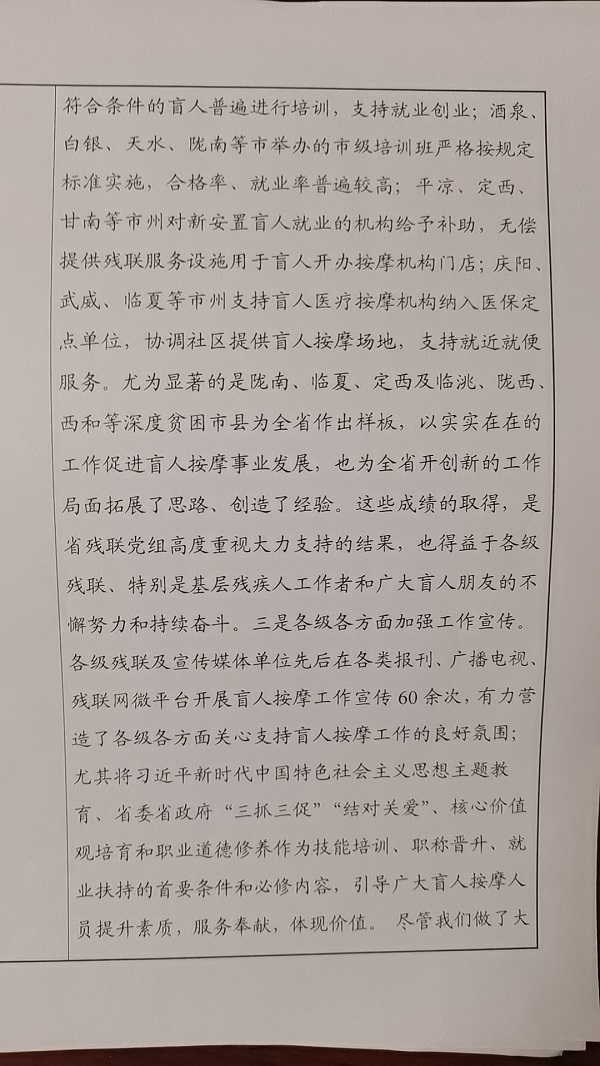 符合条件的盲人普遍进行培训，支持就业创业；酒泉、
白银、天水、陇南等市举办的市级培训班严格按规定
标准实施，合格率、就业率普遍较高；平凉、定西、
甘南等市州对新安置盲人就业的机构给予补助，无偿
提供残联服务设施用于盲人开办按摩机构门店；庆阳、
武威、临夏等市州支持盲人医疗按摩机构纳入医保定
点单位，协调社区提供盲人按摩场地，支持就近就便
服务。尤为显著的是陇南、临夏、定西及临洮、陇西、
西和等深度贫困市县为全省作出样板，以实实在在的
工作促进盲人按摩事业发展，也为全省开创新的工作
局面拓展了思路、创造了经验。这些成绩的取得，是
省残联党组高度重视大力支持的结果，也得益于各级
残联、特别是基层残疾人工作者和广大盲人朋友的不
懈努力和持续奋斗。三是各级各方面加强工作宣传。
各级残联及宣传媒体单位先后在各类报刊、广播电视、
残联网微平台开展盲人按摩工作宣传 60 余次，有力营
造了各级各方面关心支持盲人按摩工作的良好氛围；
尤其将习近平新时代中国特色社会主义思想主题教
育、省委省政府“三抓三促”“结对关爱”、核心价值
观培育和职业道德修养作为技能培训、职称晋升、就
业扶持的首要条件和必修内容，引导广大盲人按摩人
员提升素质，服务奉献，体现价值。 尽管我们做了大